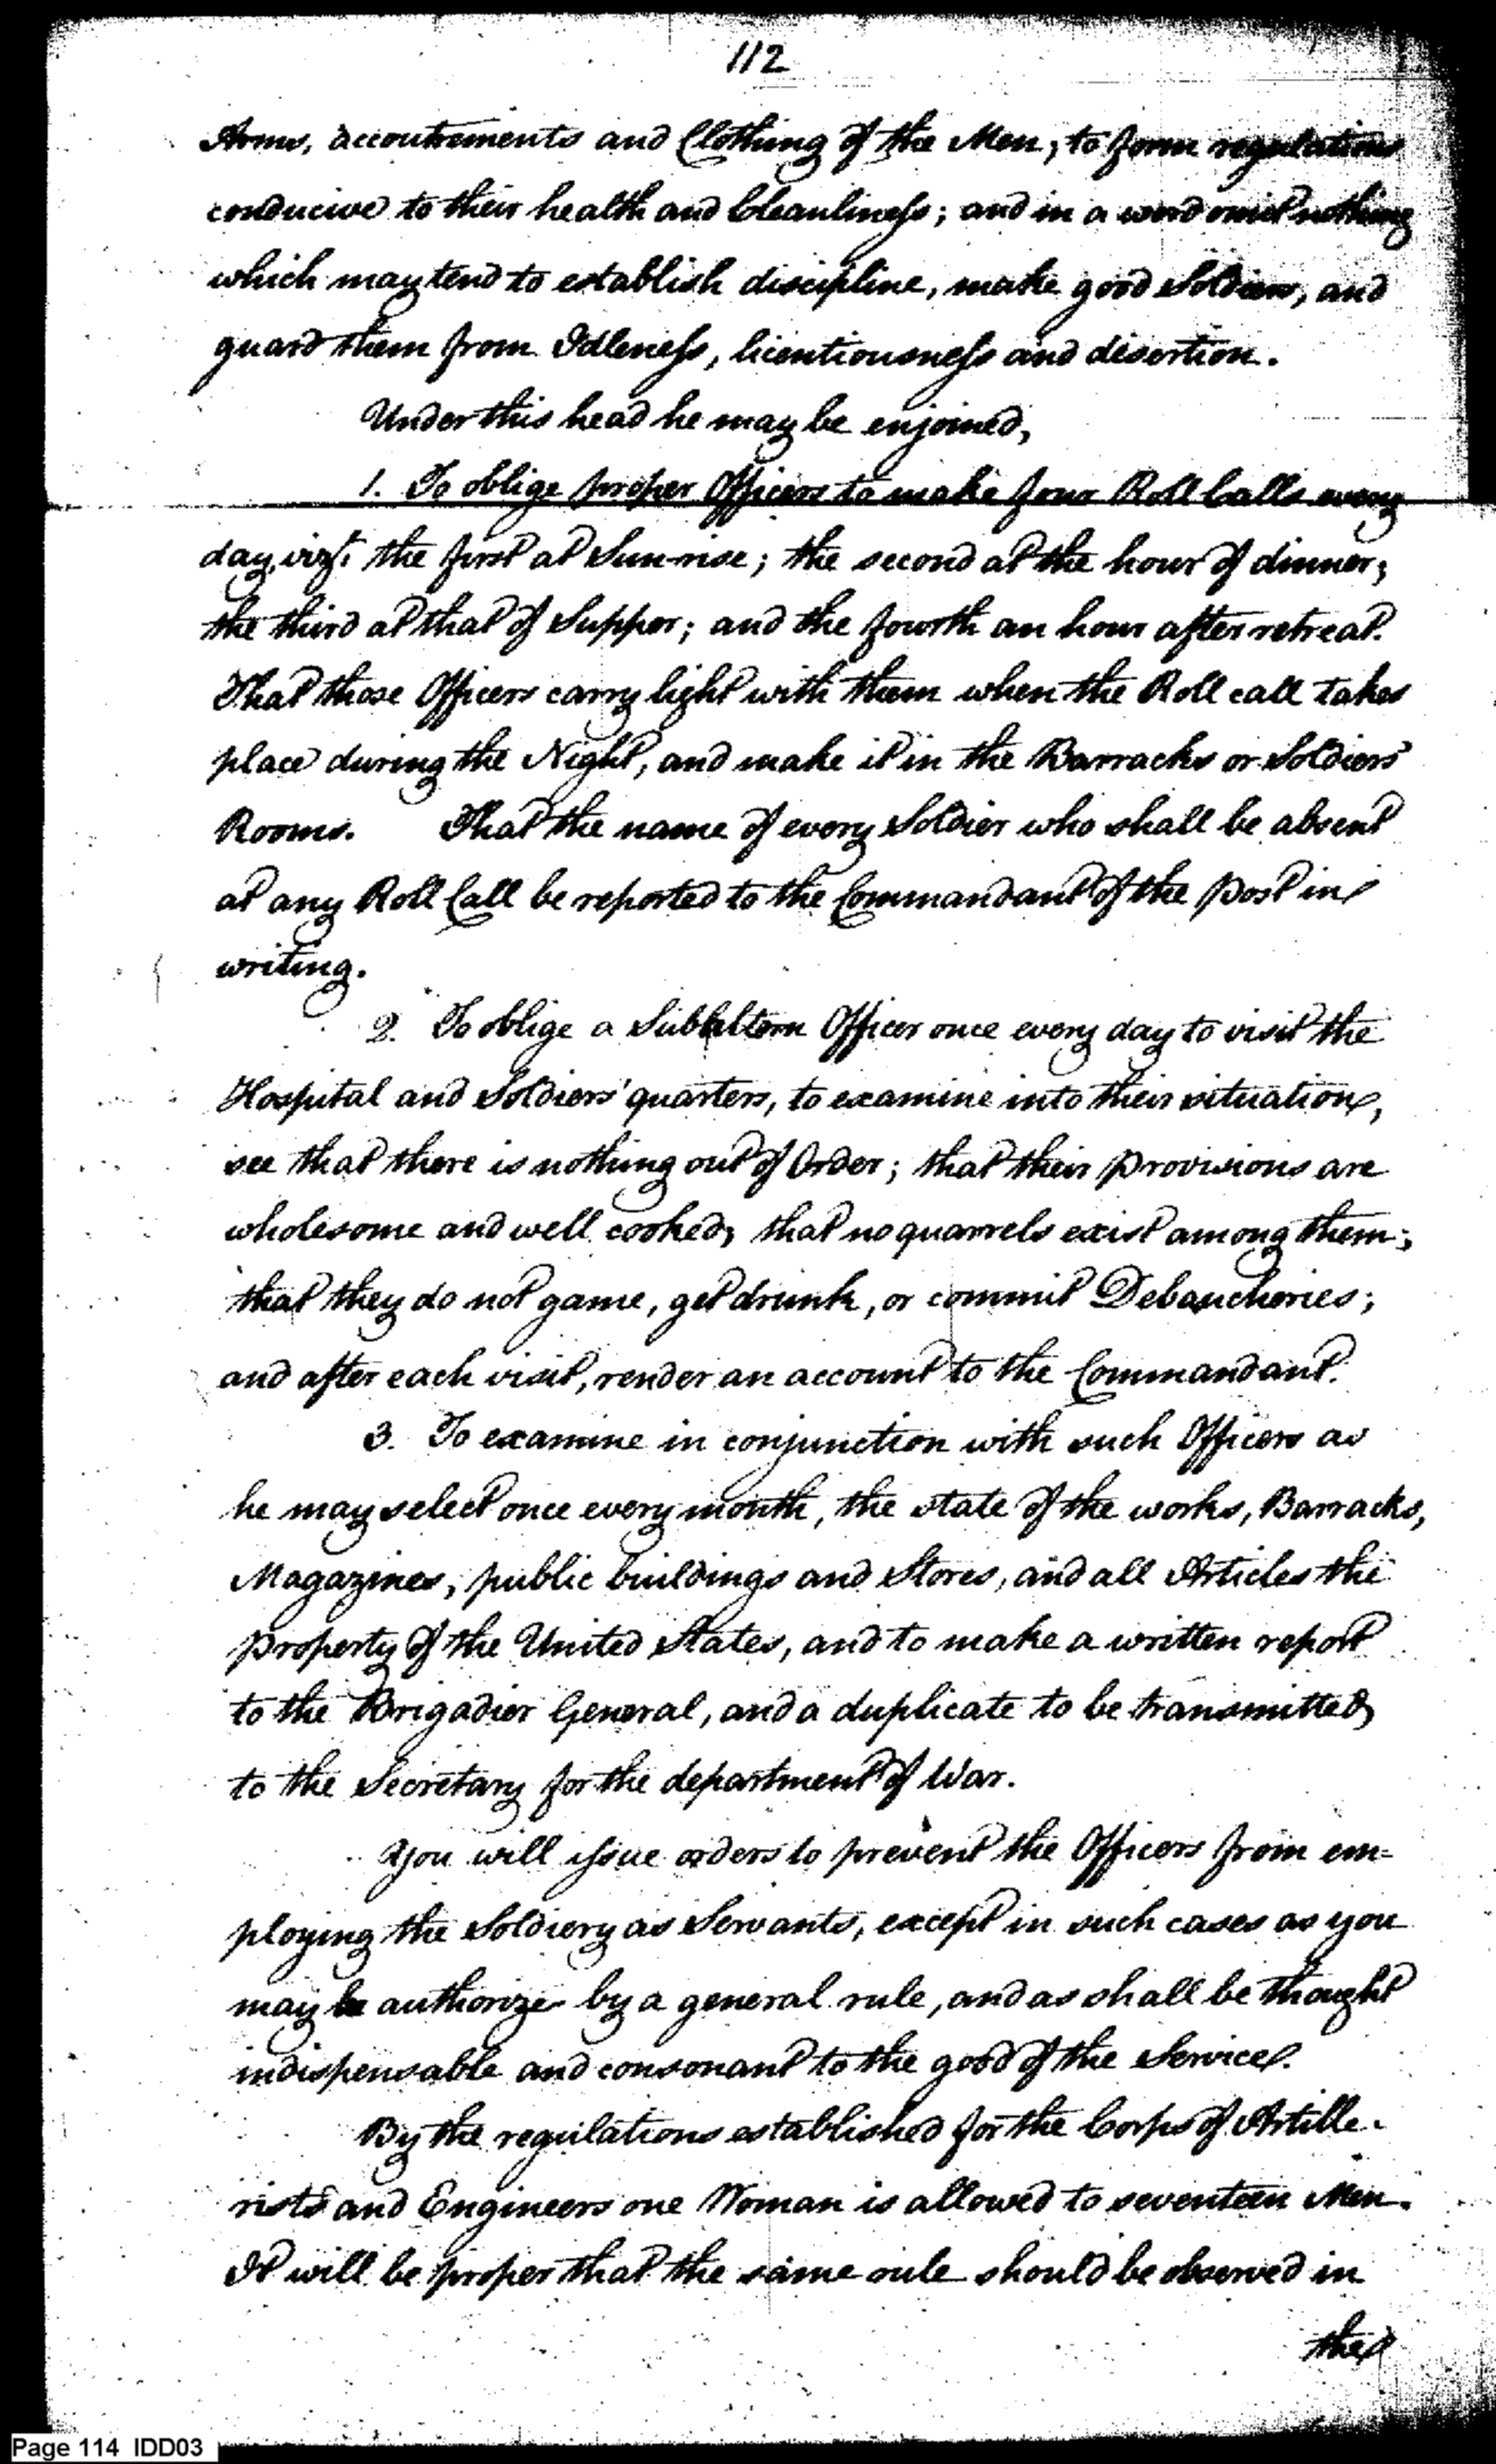 112
Arms, accoutrements and Clothing of the Men; to form regulations
conducive to their health and Cleanliness; and in a word omit nothing
which may tend to establish discipline, make good Soldiers, and
guard them from Idleness, licentiousness and desertion.
Under this head he may be enjoined,
1. To oblige proper Officers to make four Roll Calls every
day, vizt. the first at Sun-rise; the second at the hour of dinner;
the third at that of Supper; and the fourth an hour after retreat.
That those Officers carry light with them when the Roll call takes
place during the Night, and make it in the Barracks or Soldiers'
Rooms. That the name of every Soldier who shall be absent
at any Roll Call be reported to the Commandant of the post in
writing.
2. To oblige a Subaltern Officer once every day to visit the
Hospital and Soldiers' quarters, to examine into their situation,
see that there is nothing out of Order; that their provisions are
wholesome and well cooked, that no quarrels exist among them;
that they do not game, get drunk, or commit Debaucheries;
and after each visit, render an account to the Commandant.
3. To examine in conjunction with such Officers as
he may select once every month, the state of the works, Barracks,
Magazines, public buildings and Stores, and all Articles the
property of the United States, and to make a written report
to the Brigadier General, and a duplicate to be transmitted
to the Secretary for the department of War.
You will issue orders to prevent the Officers from em-
ploying the Soldiery as Servants, except in such cases as you
may authorize by a general rule, and as shall be thought
indispensable and consonant to the good of the Service.
By the regulations established for the Corps of Artille-
rists and Engineers one Woman is allowed to seventeen Men.
It will be proper that the same rule should be observed in
the
Page 114 IDD03